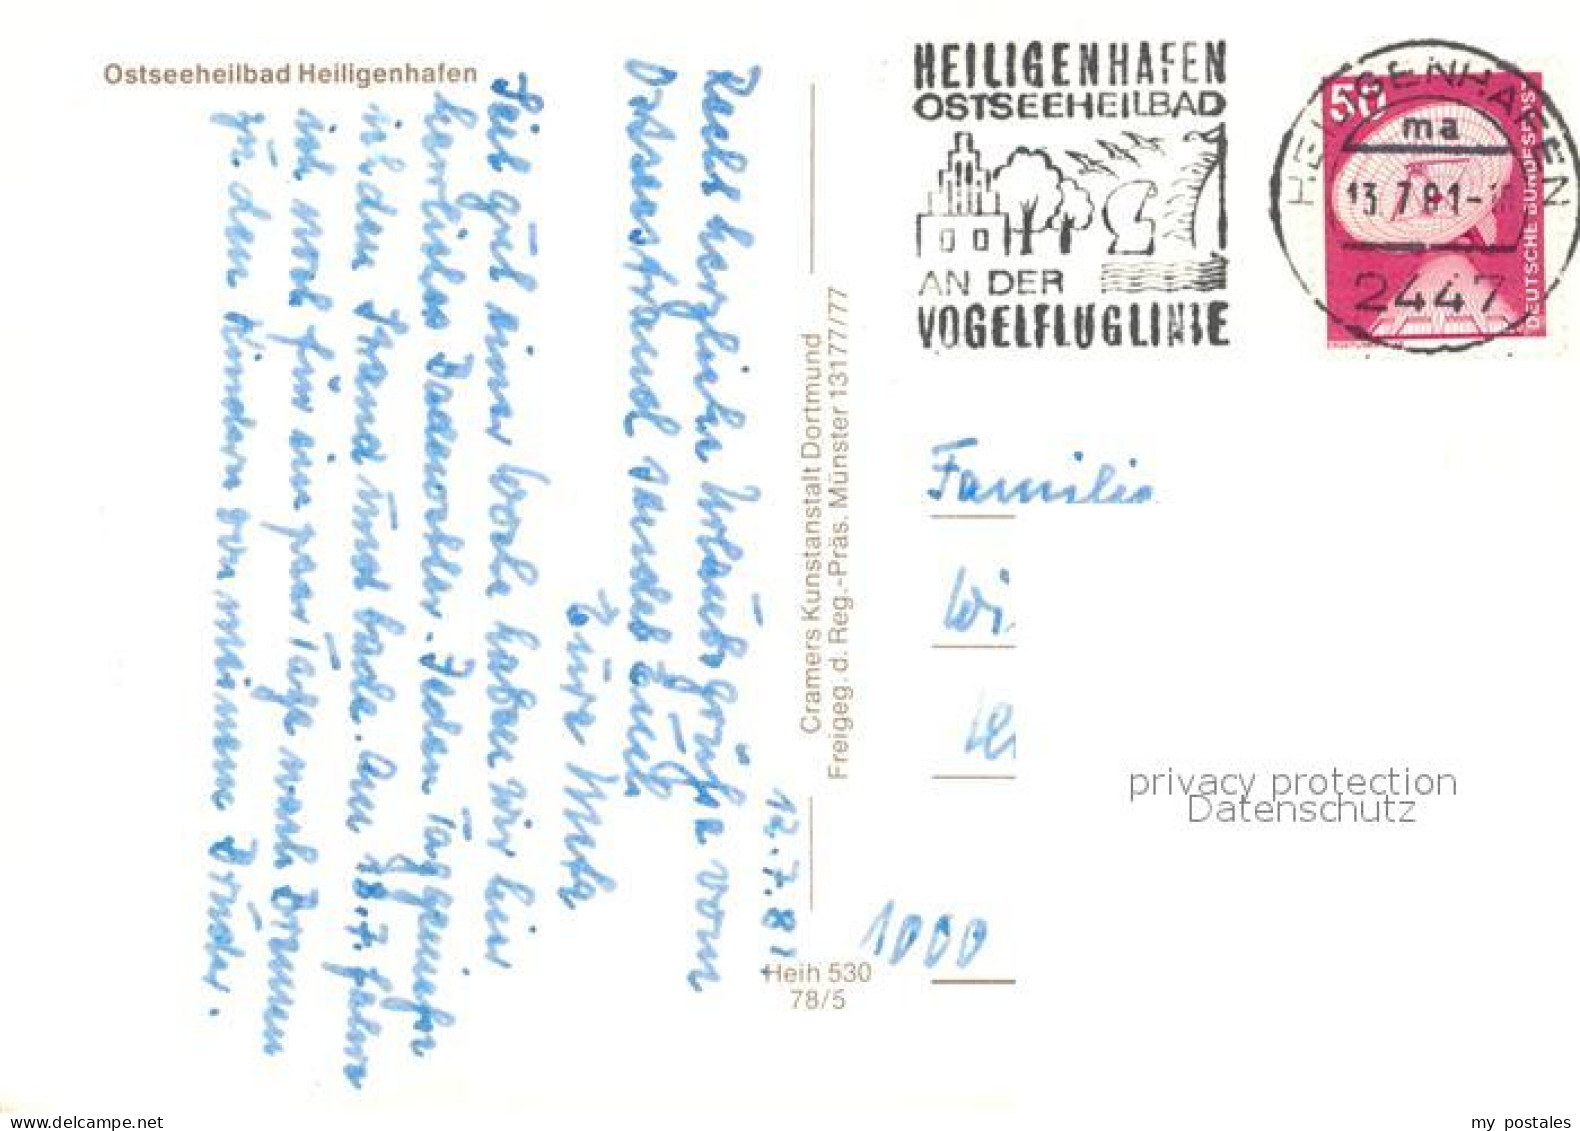 Ostseeheilbad Heiligenhafen
12.7.81
Recht herzliche Urlaubsgrüße vom
Ostseestrand sendet Euch
Eure Muta
Seit gut einer Woche haben wir hier
herrliches Badewetter. Jeden Tag gemifa
in den Strand und bade. Am 18.7. fahre
ich noch für ein paar Tage nach Bremen
zu den Kindern von meinem Bruder.
Cramers Kunstanstalt Dortmund
Freigeg. d. Reg.-Präs. Münster 13177/77
Heih 530
78/5
HEILIGENHAFEN
OSTSEEHEILBAD
AN DER
VOGELFLUGLINIE
HEILIGENHAFEN
ma
13.7.81
2447
50
DEUTSCHE BUNDESPOST
Familie
Wi
1000
privacy protection
Datenschutz
www.delcampe.net
my_postales